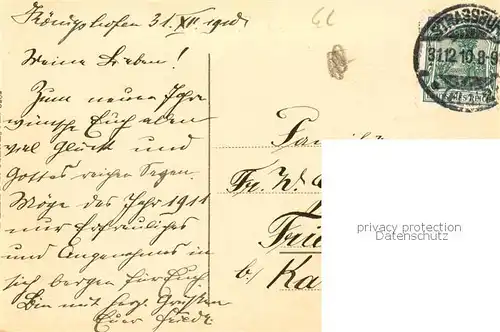 Königshofen 31. XII. 1910.
Meine Lieben!
Zum neuen Jahr
wünsche Euch allen
viel Glück und
Gottes reichen Segen.
Möge das Jahr 1911
nur Erfreuliches
und Angenehmes in
sich bergen für Euch
Bin mit herzl. Grüßen
Euer Friedr.
STRASSBURG
31.12.10.8-9
Familie
Fr. W.
Frie
b/ Ka
privacy protection
Datenschutz